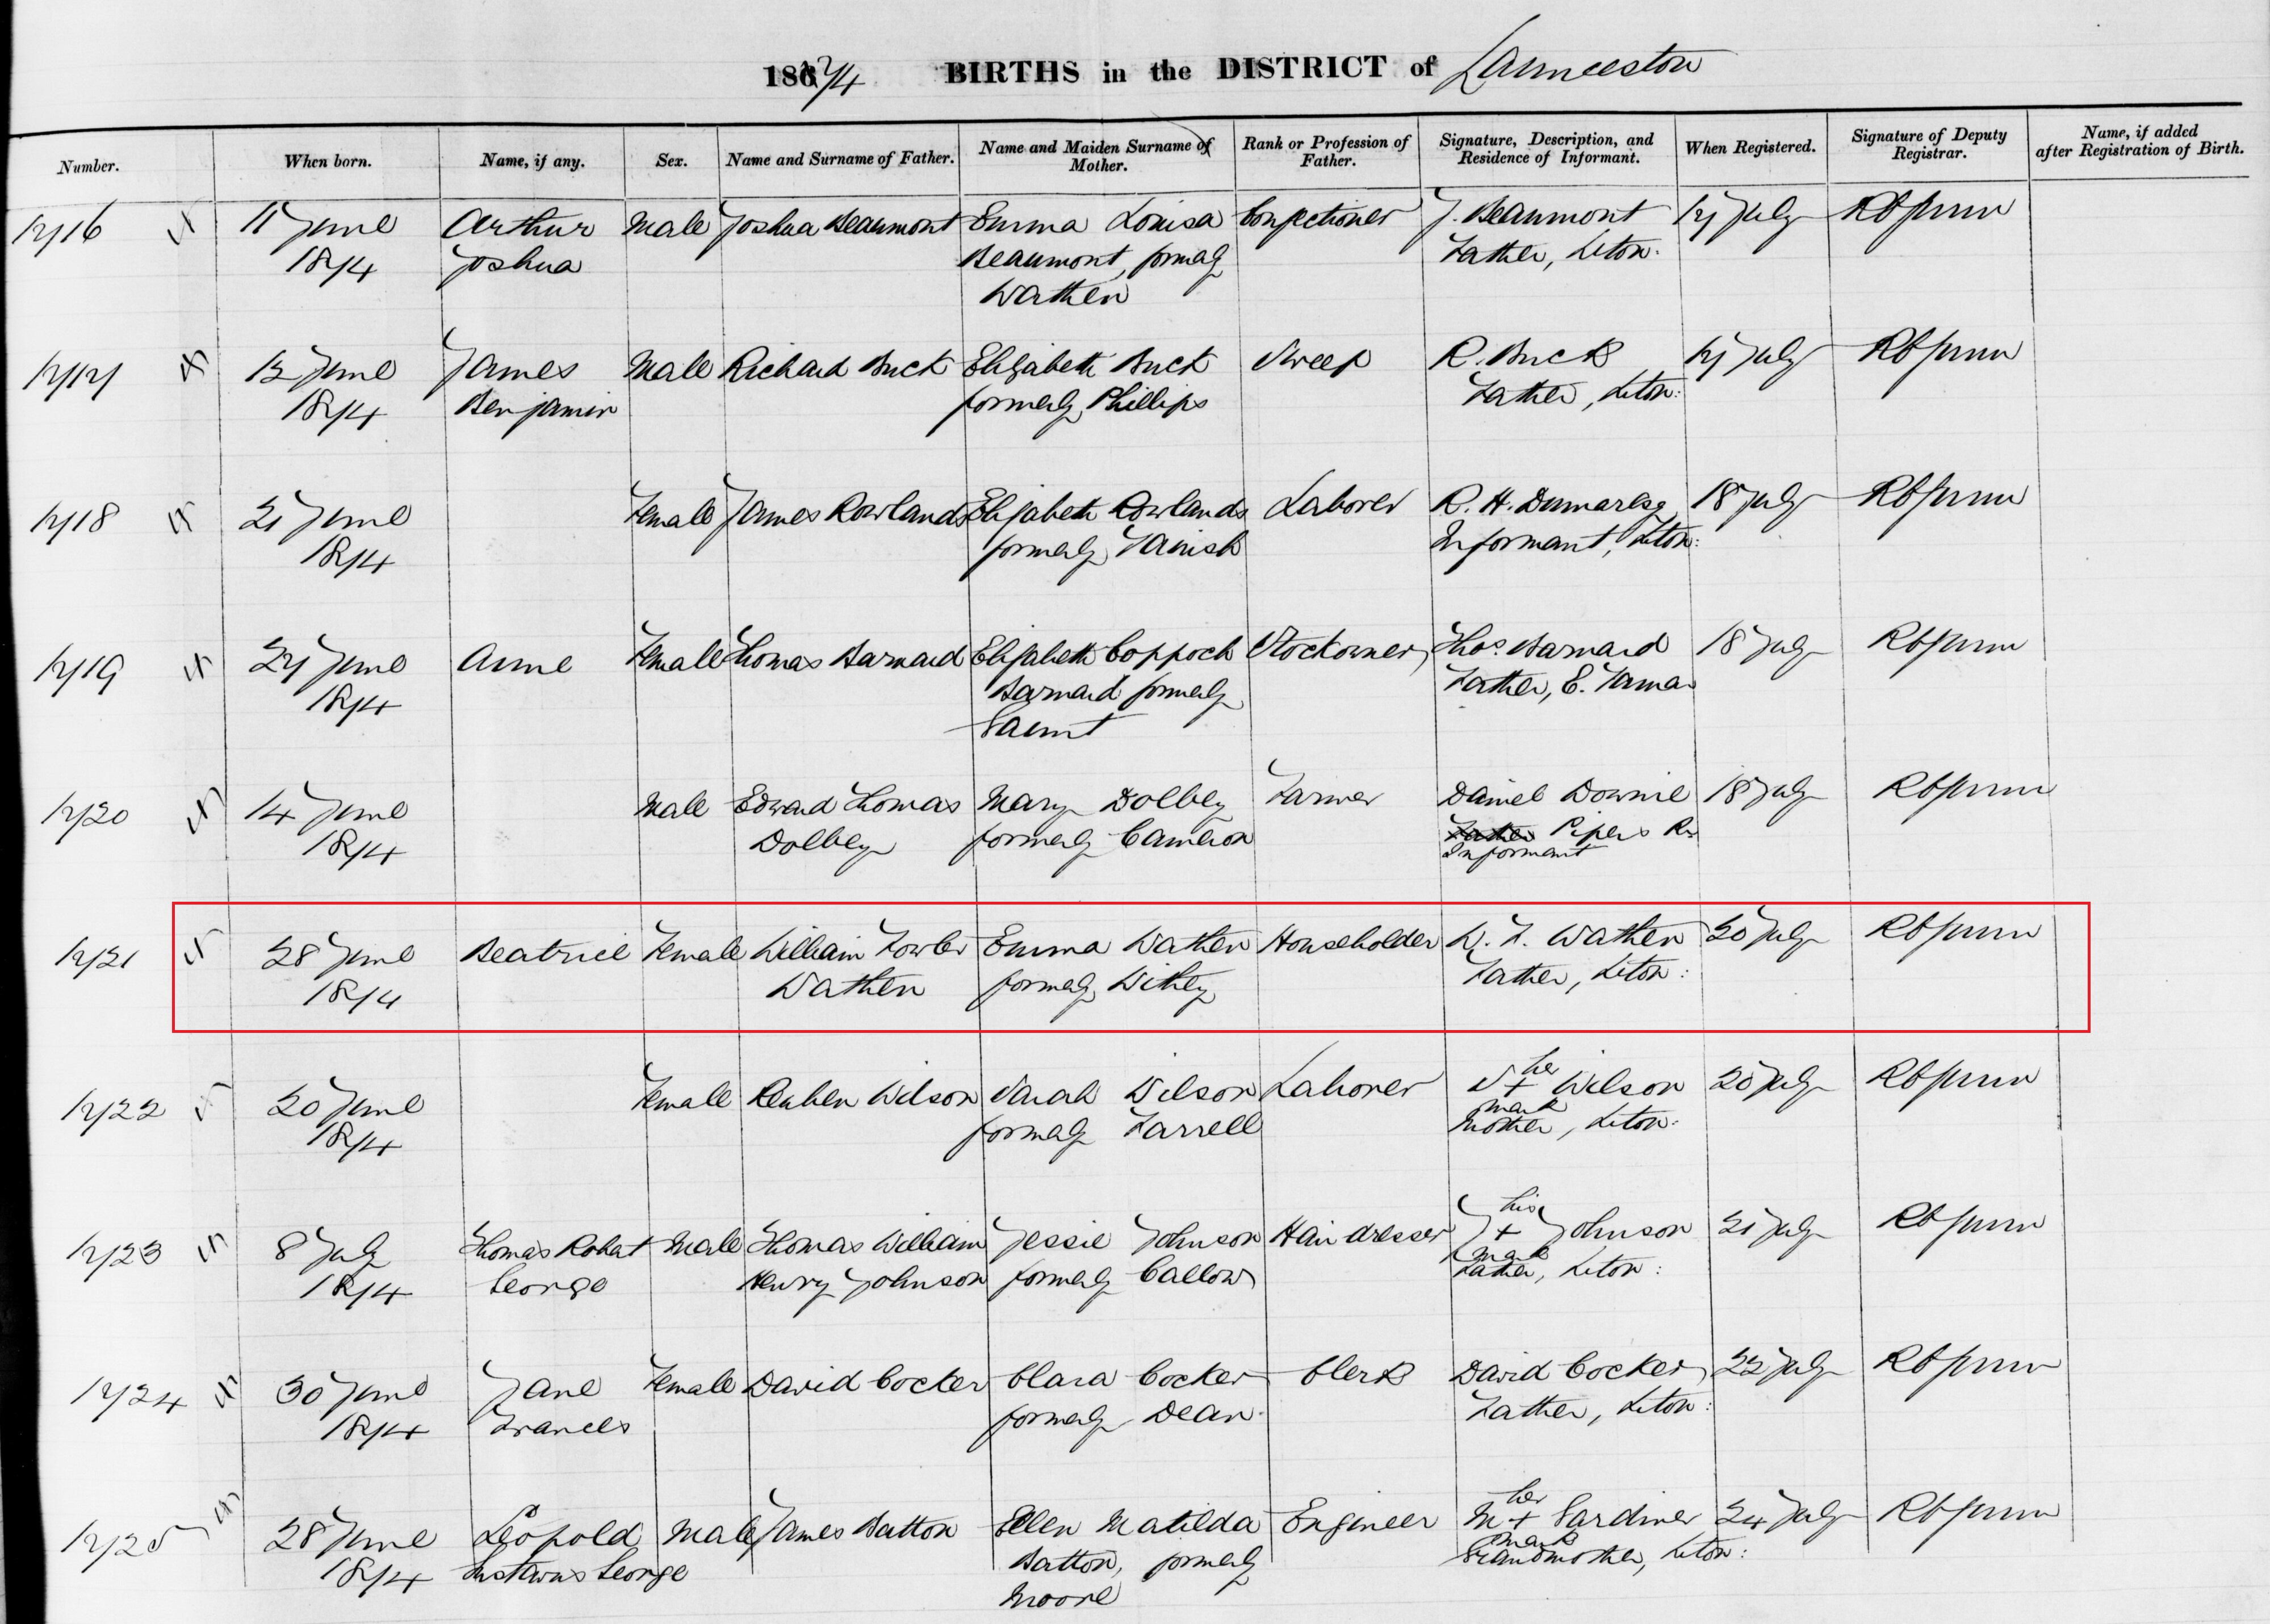 1874 BIRTHS in the DISTRICT of Launceston
Number. When born. Name, if any. Sex. Name and Surname of Father. Name and Maiden Surname of Mother. Rank or Profession of Father. Signature, Description, and Residence of Informant. When Registered. Signature of Deputy Registrar. Name, if added after Registration of Birth.
1716 11 June Arthur Male Joshua Beaumont Emma Louisa Confectioner J. Beaumont 17 July
1874 Joshua Beaumont, formerly Father, Lton:
Wathen
1717 13 June James Male Richard Buck Elizabeth Buck Sweep R. Buck 17 July
1874 Benjamin formerly Phillips Father, Lton:
1718 21 June Female James Rowlands Elizabeth Rowlands Laborer R. H. Dumaresq 18 July
1874 formerly Informant, Lton:
1719 27 June Anne Female Thomas Barnard Elizabeth Coppock Stockowner Thos. Barnard 18 July
1874 Barnard formerly Father, E. Tamar
Gaunt
1720 14 June Male Edward Thomas Mary Dolbey Farmer Daniel Downie 18 July
1874 Dolbey formerly Cameron Father Pipers Rr
Informant
1721 28 June Beatrice Female William Fowler Emma Wathen Householder W. F. Wathen 20 July
1874 Wathen formerly Withey Father, Lton:
1722 20 June Female Reuben Wilson Sarah Wilson Laborer S her + Wilson 20 July
1874 formerly Farrell mark
Mother, Lton:
1723 8 July Thomas Robert Male Thomas William Jessie Johnson Hairdresser J his + Johnson 21 July
1874 George Henry Johnson formerly Callow mark
Father, Lton:
1724 30 June Jane Female David Cocker Clara Cocker Clerk David Cocker 22 July
1874 Frances formerly Dean Father, Lton:
1725 28 June Leopold Male James Batton Ellen Matilda Engineer M her + Gardiner 24 July
1874 Gustavus George Batton, formerly mark
Moore Grandmother, Lton: